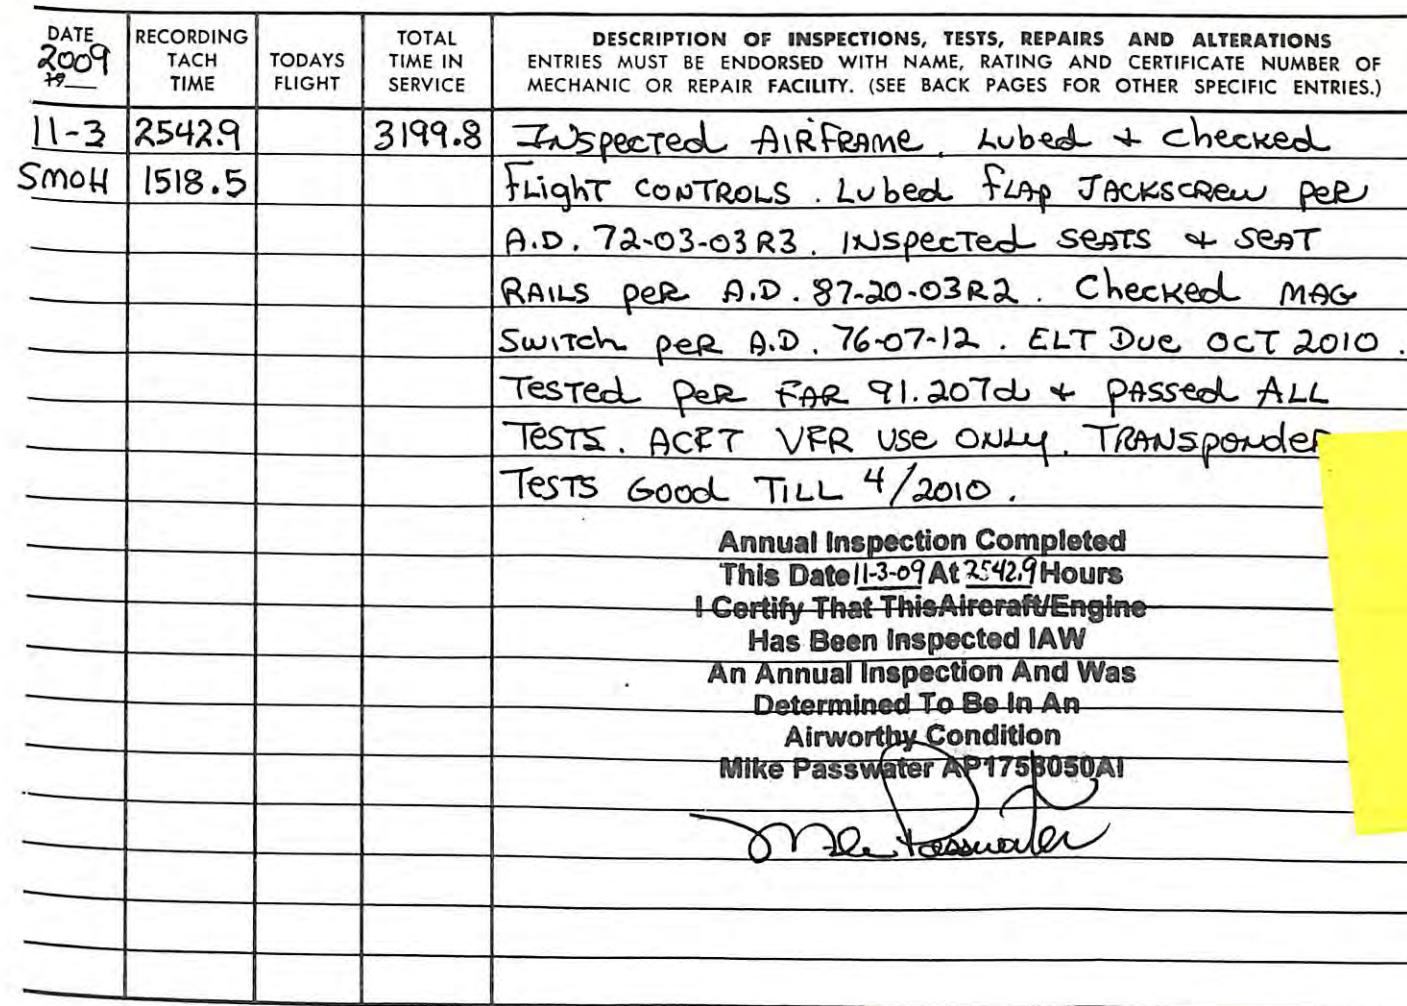 DATE RECORDING TACH TIME TODAYS FLIGHT TOTAL TIME IN SERVICE DESCRIPTION OF INSPECTIONS, TESTS, REPAIRS AND ALTERATIONS
2009 ENTRIES MUST BE ENDORSED WITH NAME, RATING AND CERTIFICATE NUMBER OF
19 MECHANIC OR REPAIR FACILITY. (SEE BACK PAGES FOR OTHER SPECIFIC ENTRIES.)
11-3 2542.9 3199.8 Inspected Airframe. Lubed + Checked
SMOH 1518.5 Flight Controls. Lubed flap Jackscrew per
A.D. 72-03-03R3. Inspected seats & seat
Rails per A.D. 87-20-03R2. Checked Mag
Switch per A.D. 76-07-12. ELT Due Oct 2010.
Tested per FAR 91.207d + passed all
Tests. ACFT VFR use only. Transponder
Tests Good Till 4/2010.
Annual Inspection Completed
This Date 11-3-09 At 2542.9 Hours
I Certify That ThisAircraft/Engine
Has Been Inspected IAW
An Annual Inspection And Was
Determined To Be In An
Airworthy Condition
Mike Passwater AP1758050AI
Mike Passwater